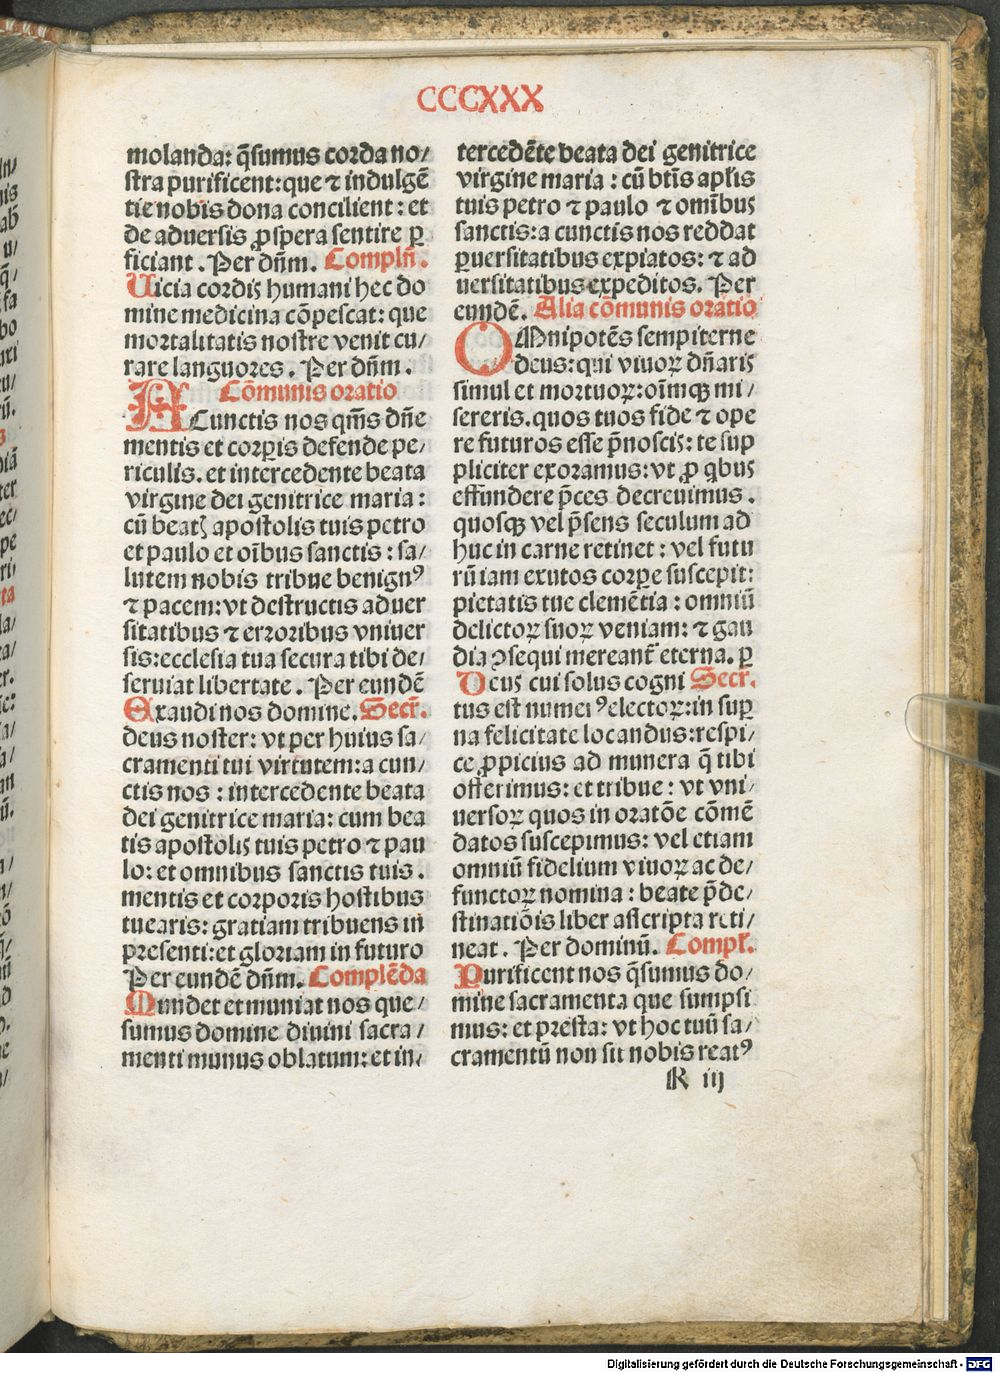 CCCXXX
molanda: q̃sumus corda no/
stra purificent: que ⁊ indulgē
tie nobis dona concilient: et
de aduersis ꝓspera sentire ꝑ
ficiant. Per dn̄m. Complñ.
Vicia cordis humani hec do
mine medicina cōpescat: que
mortalitatis nostre venit cu/
rare languores. Per dn̄m.
Cōmunis oratio
A Cunctis nos qm̄s dn̄e
mentis et corꝑis defende pe/
riculis. et intercedente beata
virgine dei genitrice maria:
cū beatꝭ apostolis tuis petro
et paulo et oībus sanctis: sa/
lutem nobis tribue benignꝰ
⁊ pacem: vt destructis aduer
sitatibus ⁊ erroribus vniuer
sis: ecclesia tua secura tibi de/
seruiat libertate. Per eundē
Exaudi nos domine. Secr̄.
deus noster: vt per huius sa/
cramenti tui virtutem: a cun/
ctis nos: intercedente beata
dei genitrice maria: cum bea
tis apostolis tuis petro ⁊ pau
lo: et omnibus sanctis tuis.
mentis et corporis hostibus
tuearis: gratiam tribuens in
presenti: et gloriam in futuro
Per eundē dn̄m. Complēda
Mundet et muniat nos que/
sumus domine diuini sacra/
menti munus oblatum: et in/
tercedēte beata dei genitrice
virgine maria: cū btīs apl̄is
tuis petro ⁊ paulo ⁊ omībus
sanctis: a cunctis nos reddat
ꝑuersitatibus expiatos: ⁊ ad
uersitatibus expeditos. Per
eundē. Alia cōmunis oratio
OMnipotēs sempiterne
deus: qui viuoꝝ dn̄aris
simul et mortuoꝝ: oīmqꝫ mi/
sereris. quos tuos fide ⁊ ope
re futuros esse p̄noscis: te sup
pliciter exoramus: vt ꝓ qͥbus
effundere p̄ces decreuimus.
quosqꝫ vel p̄sens seculum ad
huc in carne retinet: vel futu
rū iam exutos corꝑe suscepit:
pietatis tue clemētia: omniū
delictoꝝ suoꝝ veniam: ⁊ gau
dia ꝯsequi mereant᷑ eterna. ꝑ
Deus cui solus cogni Secr̄.
tus est numerꝰ electoꝝ: in suꝑ
na felicitate locandus: respi/
ce ꝓpicius ad munera q̄ tibi
offerimus: et tribue: vt vni/
uersoꝝ quos in oratōe cōmē
datos suscepimus: vel etiam
omniū fidelium viuoꝝ ac de/
functoꝝ nomina: beate p̄de/
stinatiōis liber asscripta reti/
neat. Per dominū. Compl̄.
Purificent nos q̄sumus do/
mine sacramenta que sumpsi
mus: et presta: vt hoc tuū sa/
cramentū non sit nobis reatꝰ
R iij
Digitalisierung gefördert durch die Deutsche Forschungsgemeinschaft - DFG